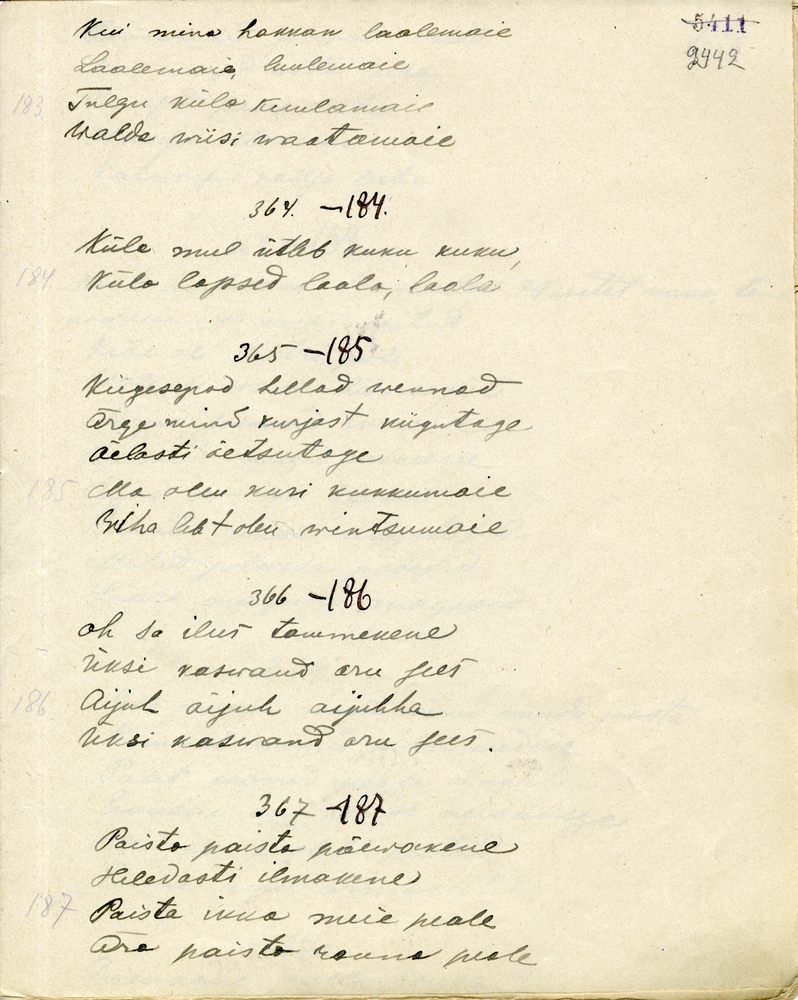 5411
2442
Kui mina hakkan laalemaie
Laalemaie, luulemaie
183 Tulgu küla kuulamaie
Walda wiisi waatamaie
364. —184.
Küla mul ütleb kuku kuku,
184 Küla lapsed laala, laala
365 —185
Kiigesepad hellad wennad
Ärge mind kurjast kiigutage
Äelasti õetsutage
185 Ma olen kuri kukkumaie
Wiha leht olen wintsumaie
366 —186
oh sa ilus tammekene
Üksi kaswand aru sees
186 Aijuh aijuh aijuhha
Üksi kaswand aru sees.
367 —187
Paista paista päewakene
Heledasti ilmakene
187 Paista ikka meie peale
Ära paista ranna peale